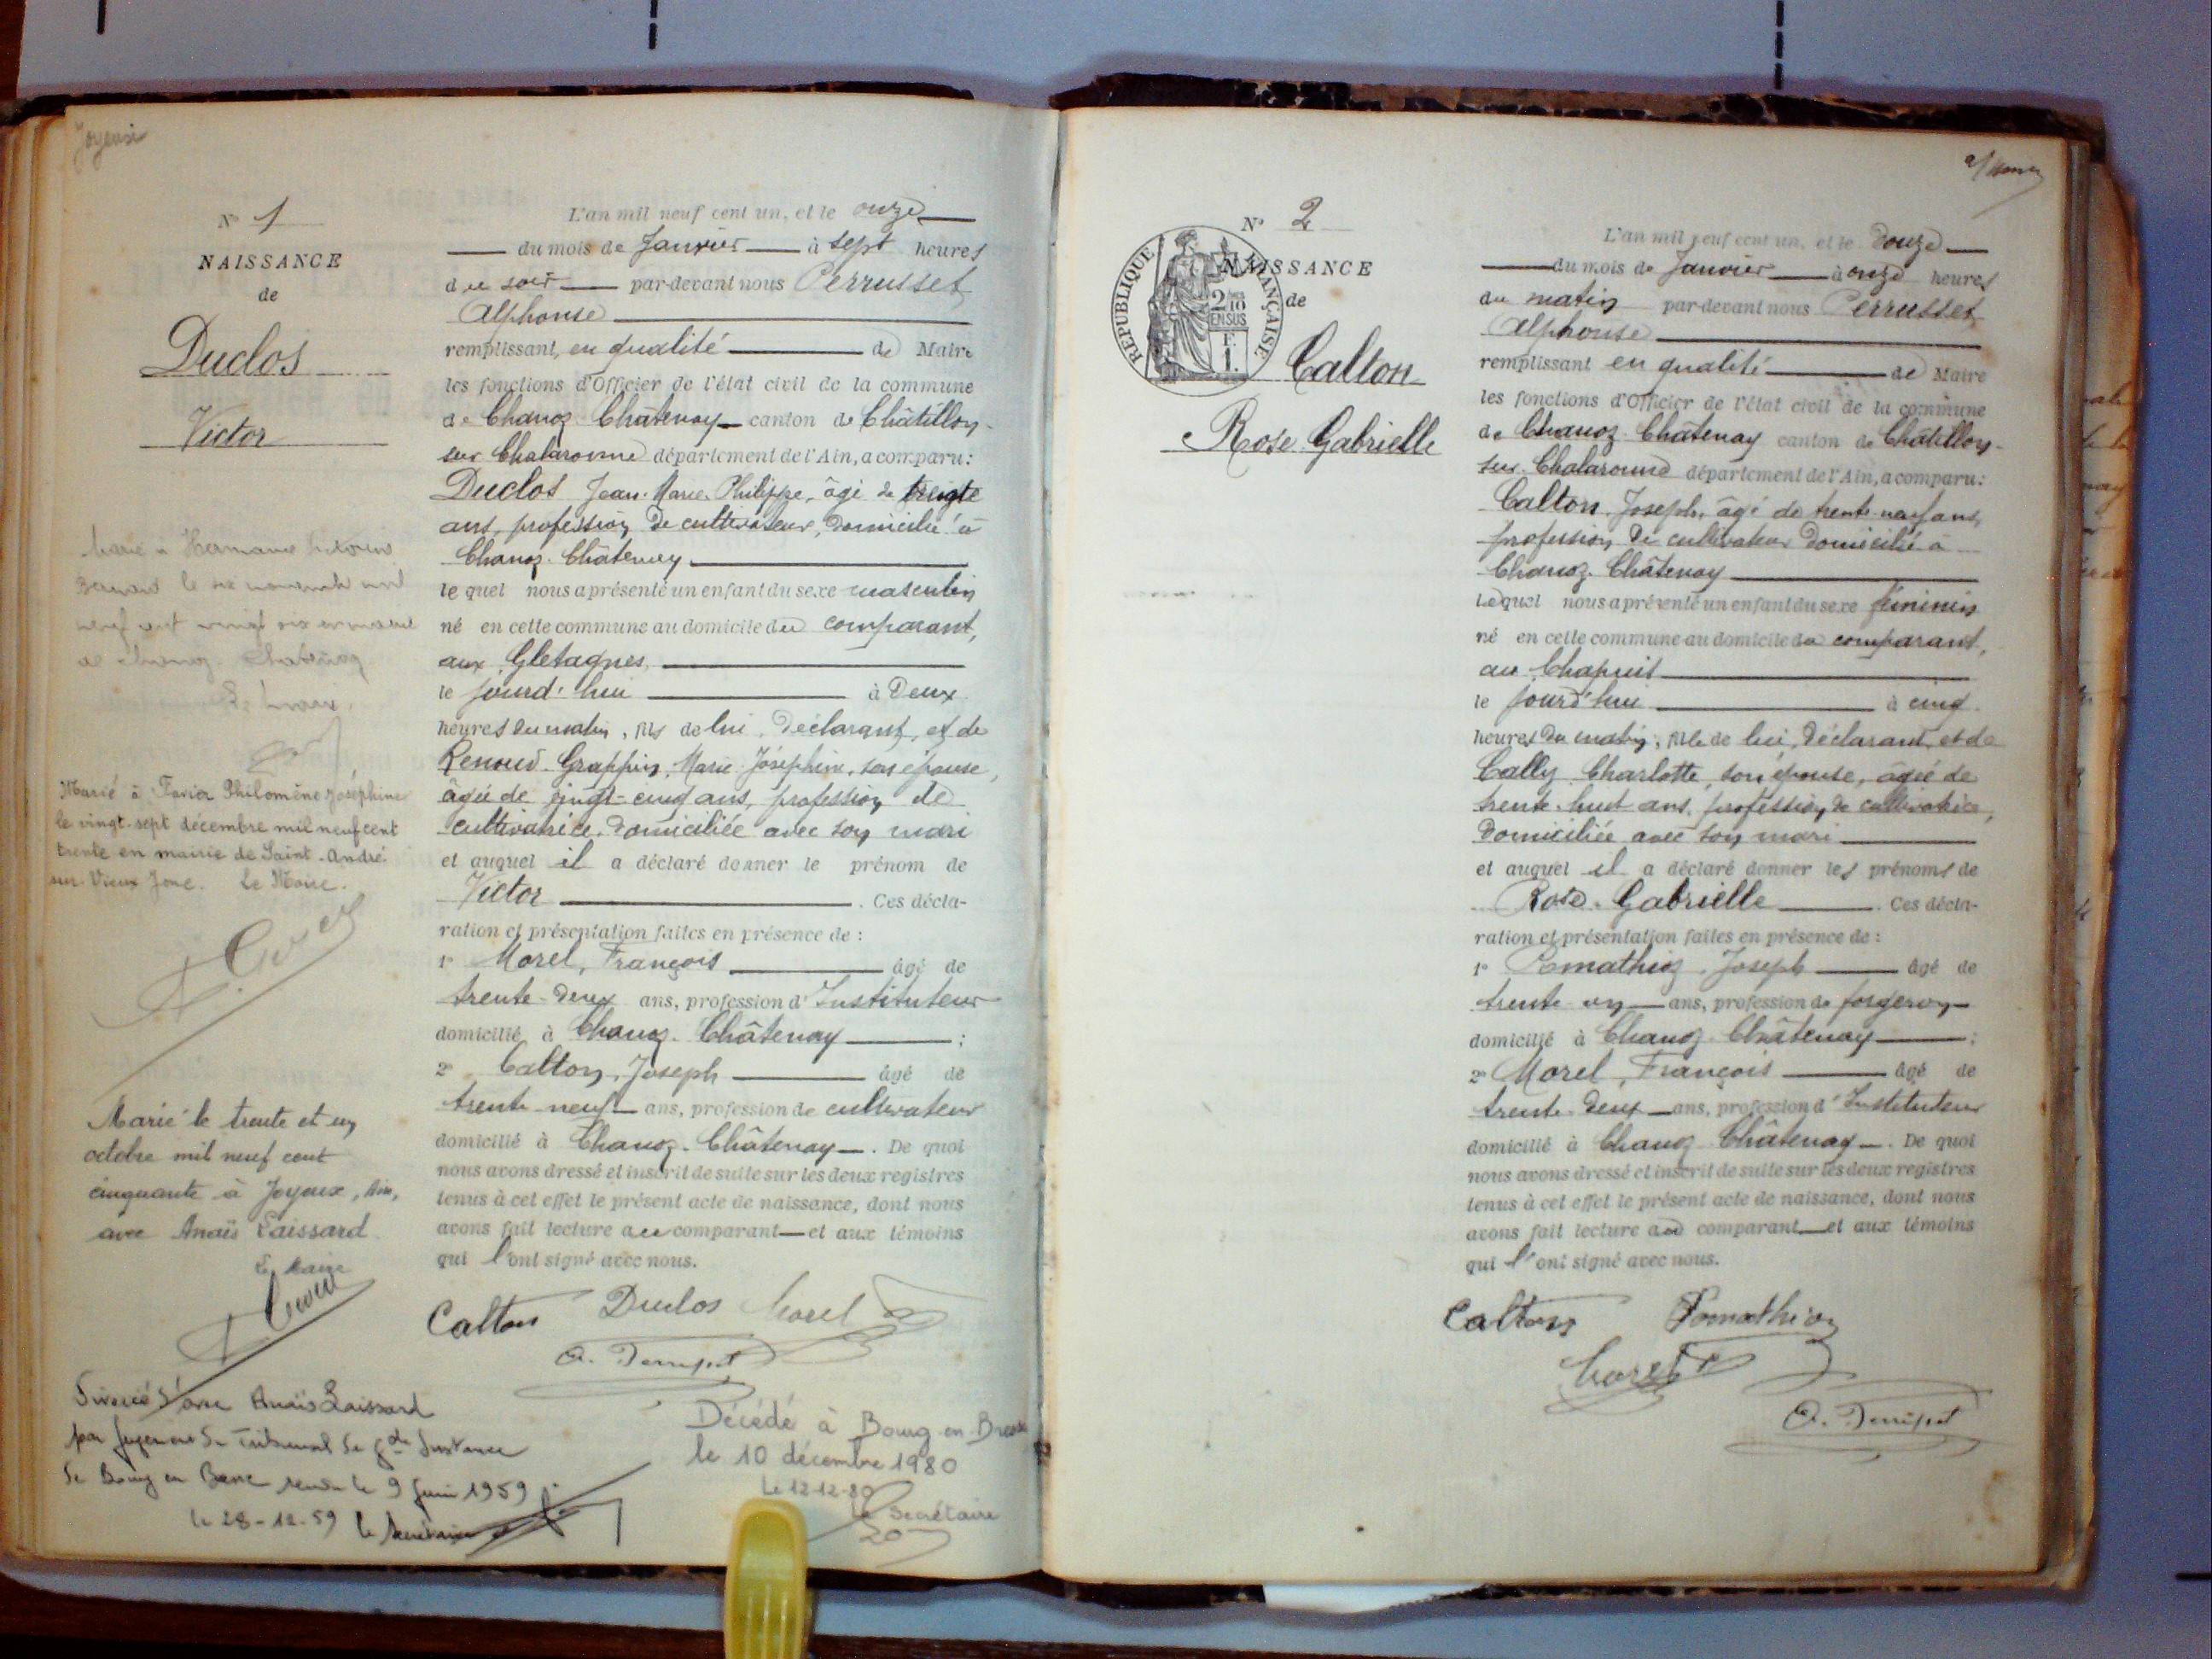 Joyeux
N° 1
NAISSANCE
de
Duclos
Victor
L'an mil neuf cent un, et le onze
du mois de Janvier à sept heures
du soir par-devant nous Perrusset
Alphonse
remplissant, en qualité de Maire
les fonctions d'Officier de l'état civil de la commune
de Chanoz-Châtenay canton de Châtillon-
sur Chalaronne département de l'Ain, a comparu:
Duclos Jean-Marie-Philippe, âgé de trente
ans, profession de cultivateur, domicilié à
Chanoz-Châtenay
lequel nous a présenté un enfant du sexe masculin
né en cette commune au domicile du comparant,
aux Gletagnes,
le jourd'hui à Deux
heures du matin, fils de lui, déclarant, et de
Renoud-Grappin, Marie-Joséphine, son épouse,
âgée de vingt-cinq ans, profession de
cultivatrice, domiciliée avec son mari
et auquel il a déclaré donner le prénom de
Victor . Ces décla-
ration et présentation faites en présence de :
1° Morel, François âgé de
trente-deux ans, profession d'Instituteur
domicilié à Chanoz-Châtenay ;
2° Calton, Joseph âgé de
trente-neuf ans, profession de cultivateur
domicilié à Chanoz-Châtenay . De quoi
nous avons dressé et inscrit de suite sur les deux registres
tenus à cet effet le présent acte de naissance, dont nous
avons fait lecture au comparant et aux témoins
qui l'ont signé avec nous.
Calton Duclos Morel
A. Perrusset
Marié à
le six novembre mil
neuf cent vingt six en mairie
de Chanoz-Chatenay
Le Maire.
Marié à Favier Philomène Joséphine
le vingt-sept décembre mil neuf cent
trente en mairie de Saint-André
sur-Vieux Jonc. Le Maire.
Marié le trente et un
octobre mil neuf cent
cinquante à Joyeux, Ain,
avec Anaïs Laissard
Le Maire
Divorcé d'avec Anaïs Laissard
par jugement du Tribunal de gde Instance
de Bourg en Bresse rendu le 9 Juin 1959
le 28-12-59 le Secrétaire
Décédé à Bourg-en-Bresse
le 10 décembre 1980
Le 12-12-80
Le Secrétaire
N° 2
NAISSANCE
de
RÉPUBLIQUE FRANÇAISE
2/10
EN SUS
F.
1.
Calton
Rose-Gabrielle
L'an mil neuf cent un, et le douze
du mois de Janvier à onze heures
du matin par-devant nous Perrusset
Alphonse
remplissant en qualité de Maire
les fonctions d'Officier de l'état civil de la commune
de Chanoz-Châtenay canton de Châtillon-
sur-Chalaronne département de l'Ain, a comparu:
Calton Joseph, âgé de trente-neuf ans,
profession de cultivateur domicilié à
Chanoz-Châtenay
Lequel nous a présenté un enfant du sexe féminin
né en cette commune au domicile du comparant,
au Chapuis
le jourd'hui à cinq
heures du matin, fille de lui, déclarant, et de
Cally Charlotte, son épouse, âgée de
trente-huit ans, profession de cultivatrice,
domiciliée avec son mari
et auquel il a déclaré donner les prénoms de
Rose-Gabrielle Ces décla-
ration et présentation faites en présence de :
1° Pomathioz Joseph âgé de
trente-un ans, profession de forgeron
domicilié à Chanoz-Châtenay ;
2° Morel, François âgé de
trente-deux ans, profession d'Instituteur
domicilié à Chanoz-Châtenay . De quoi
nous avons dressé et inscrit de suite sur les deux registres
tenus à cet effet le présent acte de naissance, dont nous
avons fait lecture au comparant et aux témoins
qui l'ont signé avec nous.
Calton Pomathioz
Morel
A. Perrusset